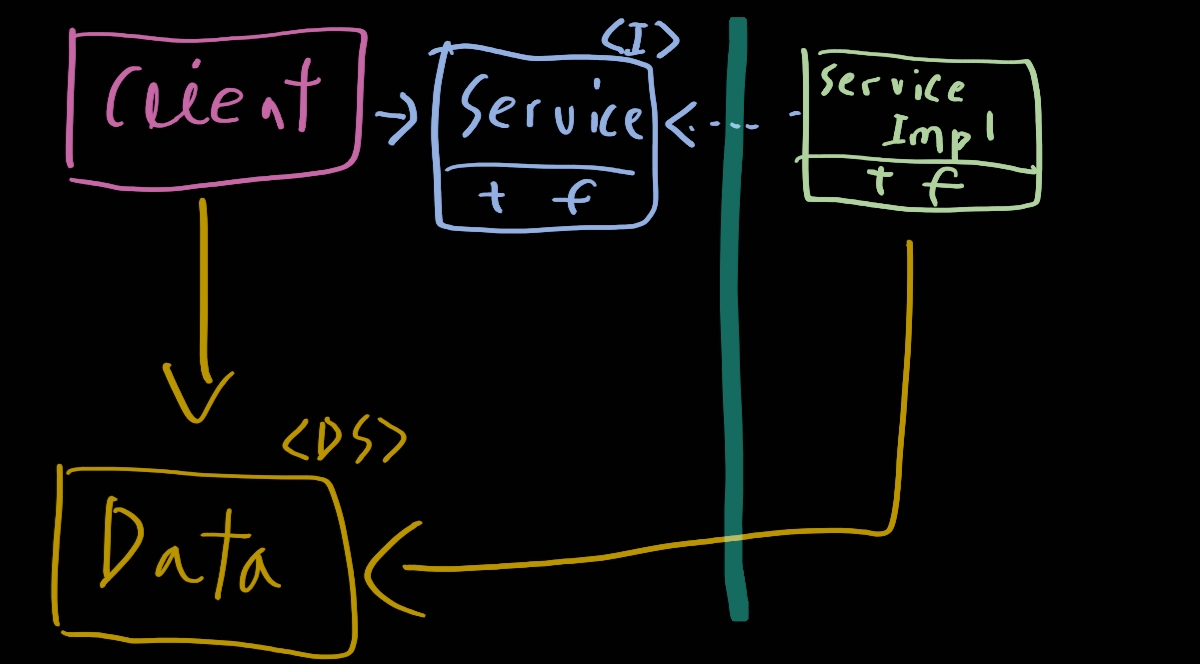 <I>
Client
Service
t f
Service
Impl
t f
<DS>
Data